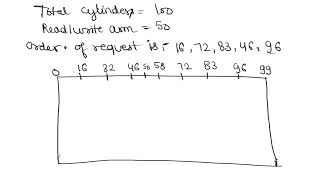 Total cylinders = 100
Read/write arm = 50
order of request is :- 16, 72, 83, 46, 96
0 16 32 46 50 58 72 83 96 99